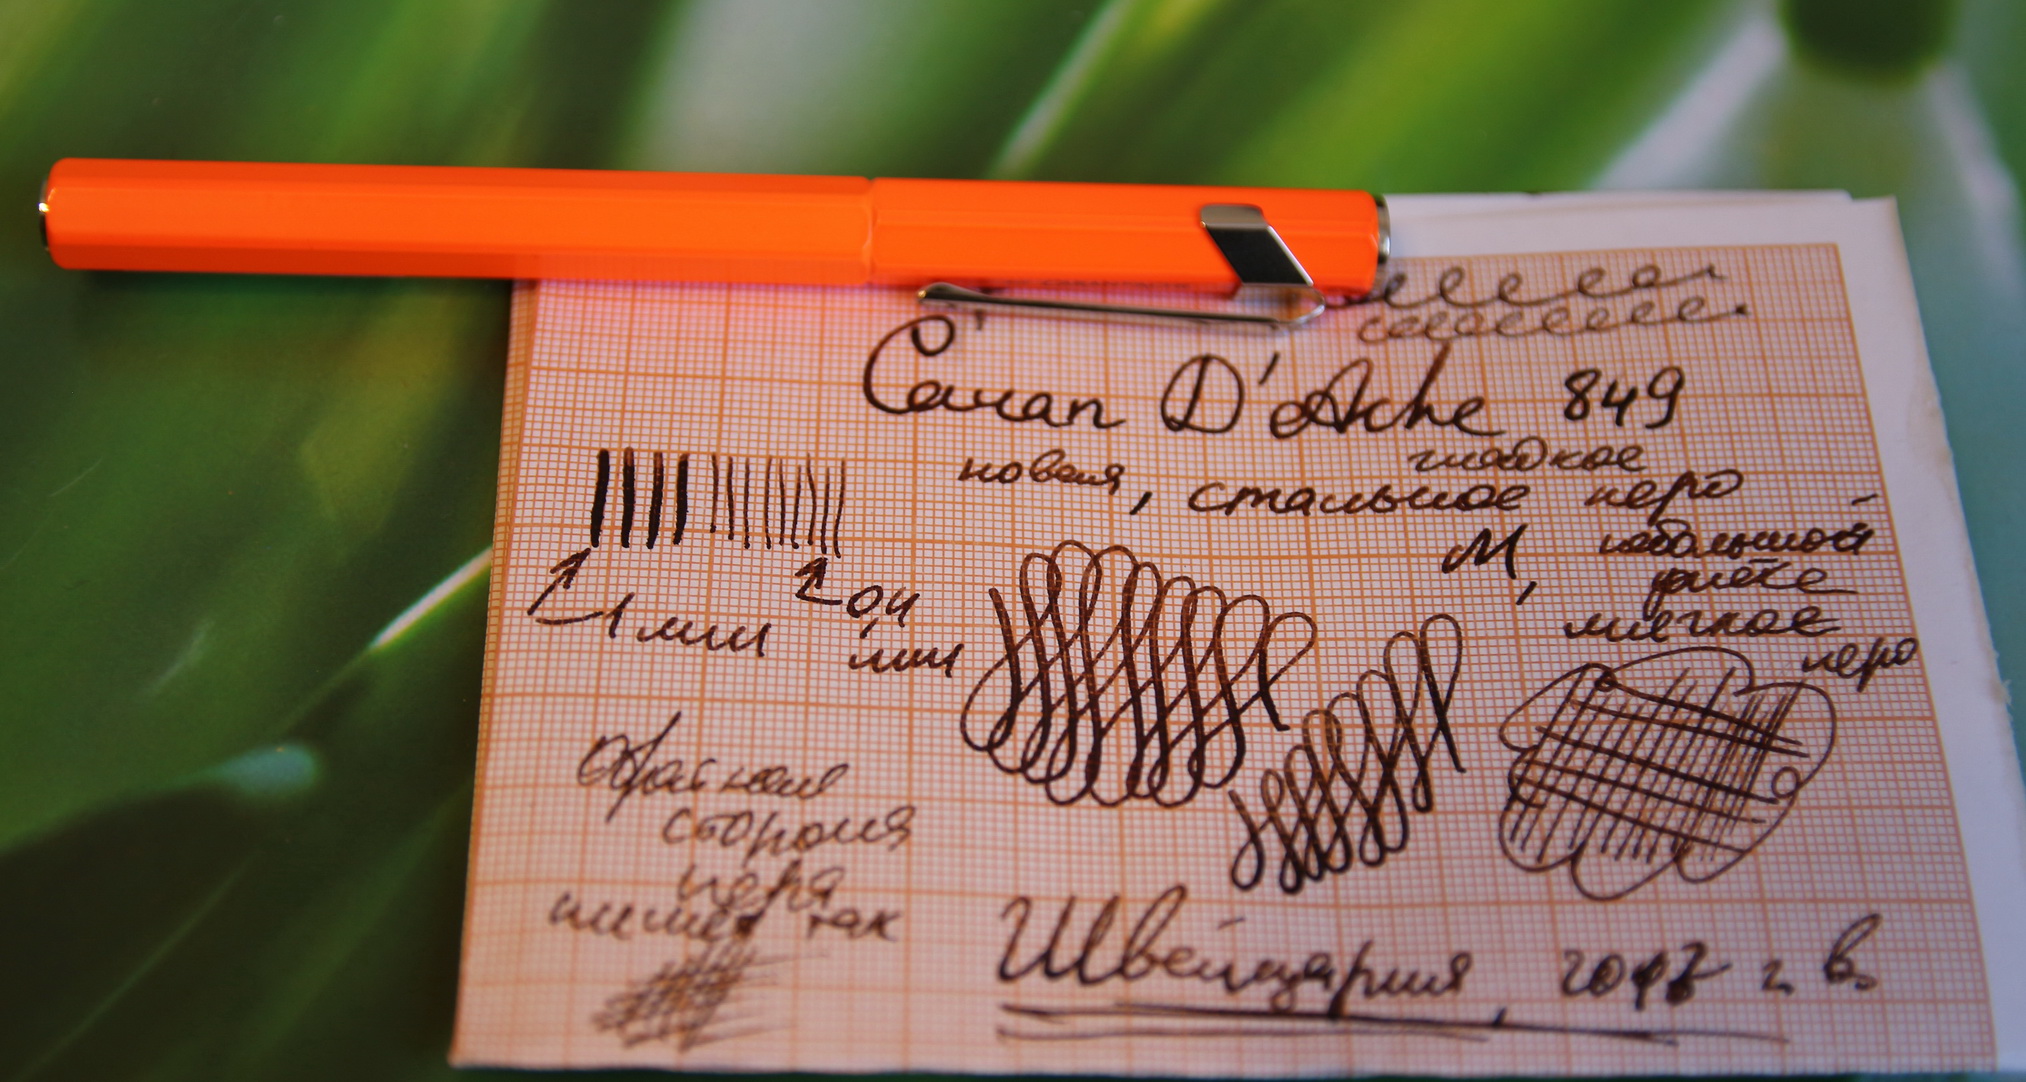 Caran D'Ache 849
гладкое
новая, стальное перо
М, небольшой
флекс
мягкое
перо
1 мм
0,4
мм
Обратная
сторона
пера
пишет так
Швейцария, 2017 г. в.